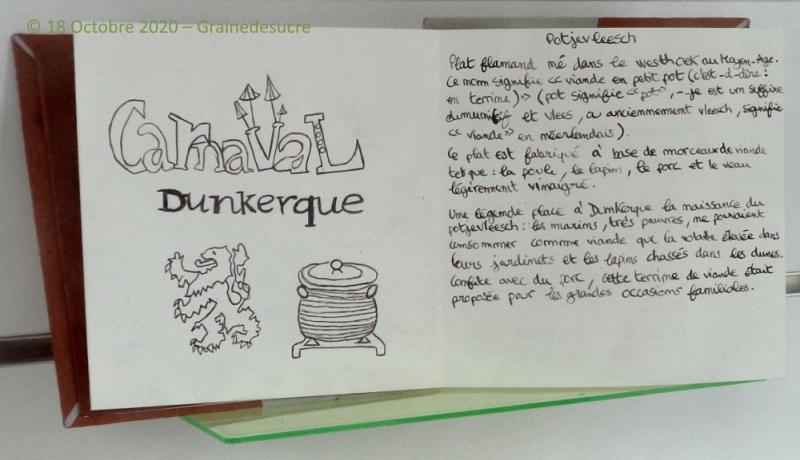 © 18 Octobre 2020 – Grainedesucre
CarnavaL
Dunkerque
Potjevleesch
Plat flamand né dans le westhoek au Moyen-Age.
Ce nom signifie << viande en petit pot (c'est-à-dire :
en terrine) >> (pot signifie << pot >>, -je est un suffixe
dimunitif et vlees, ou anciennement vleesch, signifie
<< viande >> en néerlandais).
Ce plat est fabriqué à base de morceaux de viande
tel que : la poule, le lapin, le porc et le veau
légèrement vinaigré.
Une légende place à Dunkerque la naissance du
potjevleesch : les marins, très pauvres, ne pouvaient
consommer comme viande que la volaille élevée dans
leurs jardinets et les lapins chassés dans les dunes.
Confite avec du porc, cette terrine de viande était
proposée pour les grandes occasions familiales.